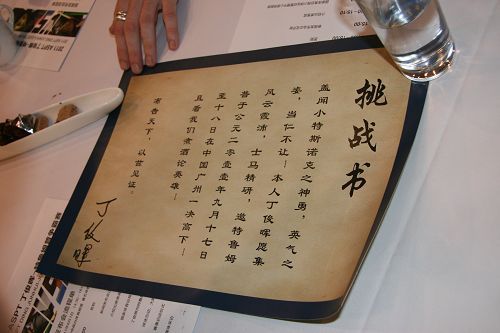 挑战书
盖闻小特斯诺克之神勇，英气之
姿，当仁不让—本人丁俊晖愿集
风云霞沛，士马精研，邀特鲁姆
普于公元二零壹壹年九月十七日
至十八日在中国广州一决高下—
且看我们煮酒论英雄—
布告天下，以兹见证。
丁俊晖
2011 ASPT 丁俊晖
ASPT 丁俊晖